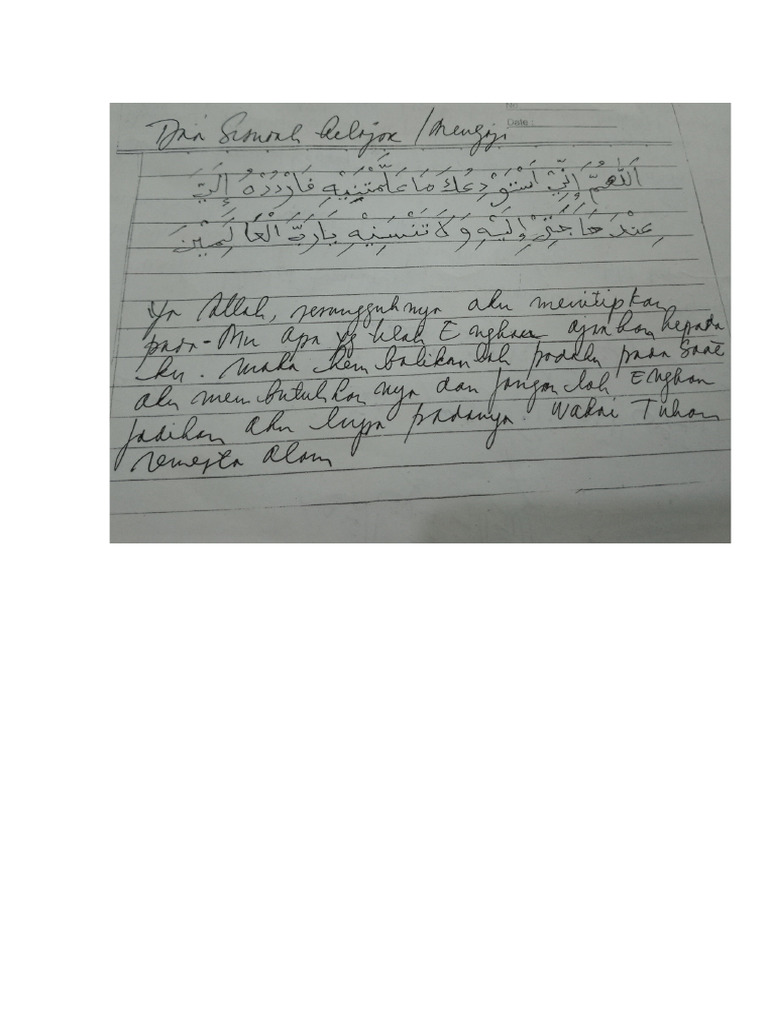 No
Date :
Doa Sesudah belajar / Mengaji
اَللّٰهُمَّ اِنِّيْ اَسْتَوْدِعُكَ مَا عَلَّمْتَنِيْهِ فَارْدُدْهُ اِلَيَّ
عِنْدَ حَاجَتِيْ اِلَيْهِ وَلَا تَنْسَنِيْهِ يَارَبَّ الْعَالَمِيْنَ
Ya Allah, sesungguhnya aku menitipkan
pada-Mu apa yg telah Engkau ajarkan kepada
ku. Maka kembalikanlah padaku pada saat
aku membutuhkannya dan janganlah Engkau
jadikan aku lupa padanya. Wahai Tuhan
semesta alam